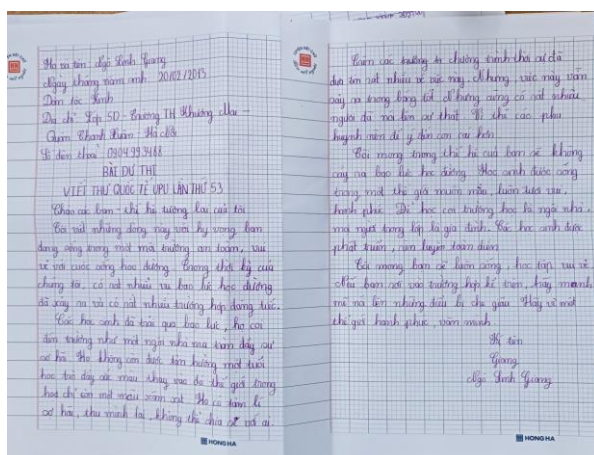 Họ và tên: Ngô Linh Giang
Ngày tháng năm sinh 20/02/2013
Dân tộc Kinh
Địa chỉ Lớp 5D - Trường TH Khương Mai -
Quận Thanh Xuân - Hà Nội
Số điện thoại: 0904993488
BÀI DỰ THI
VIẾT THƯ QUỐC TẾ UPU LẦN THỨ 53
Chào các bạn - thế hệ tương lai của tôi
Tôi viết những dòng này với hy vọng bạn
đang sống trong một môi trường an toàn, vui
vẻ với cuộc sống học đường. Trong thời kỳ của
chúng tôi, có rất nhiều vụ bạo lực học đường
đã xảy ra và có rất nhiều trường hợp đáng tiếc.
Các học sinh đã trải qua bạo lực, họ coi
đến trường như một ngôi nhà ma tràn đầy sự
sợ hãi. Họ không còn được tận hưởng một tuổi
học trò đầy sắc màu thay vào đó thế giới trong
họ chỉ còn một màu xám xịt. Họ có tâm lí
sợ hãi, thu mình lại, không thể chia sẻ với ai.
HONG HA
Trên các trường, chương trình thời sự đã
đưa tin rất nhiều về việc này. Nhưng việc này vẫn
xảy ra trong bóng tối. Nhưng cũng có rất nhiều
người đã nói lên sự thật. Vì thế các phụ
huynh nên để ý đến con cái hơn.
Tôi mong trong thế hệ của bạn sẽ không
xảy ra bạo lực học đường. Học sinh được sống
trong một thế giới muôn màu, luôn tươi vui,
hạnh phúc. Để học coi trường học là ngôi nhà,
mọi người trong lớp là gia đình. Các học sinh được
phát triển, rèn luyện toàn diện.
Tôi mong bạn sẽ luôn sống, học tập vui vẻ.
Nếu bạn rơi vào trường hợp kể trên, hãy mạnh
mẽ nói lên những điều bị che giấu. Hãy vì một
thế giới hạnh phúc, văn minh.
Ký tên
Giang
Ngô Linh Giang
HONG HA